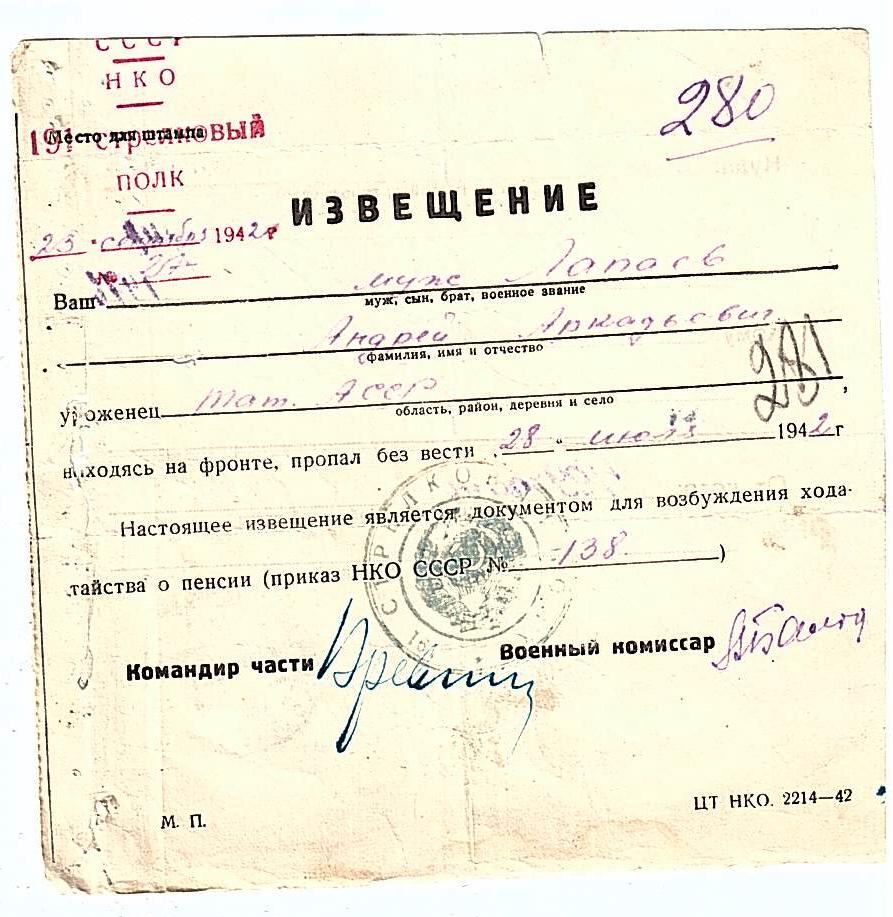 СССР
НКО
280
Место для штампа
191 Стрелковый
ПОЛК
ИЗВЕЩЕНИЕ
23 " сентября 1942 г
№
Ваш муж Лапаев
муж, сын, брат, военное звание
Андрей Аркадьевич
(фамилия, имя и отчество
281
уроженец Тат. АССР
область, район, деревня и село
находясь на фронте, пропал без вести „28 " июля 1942 г
Настоящее извещение является документом для возбуждения хода-
тайства о пенсии (приказ НКО СССР № 138 )
СТРЕЛКОВ
191
Командир части
Военный комиссар
М. П.
ЦТ НКО. 2214—42